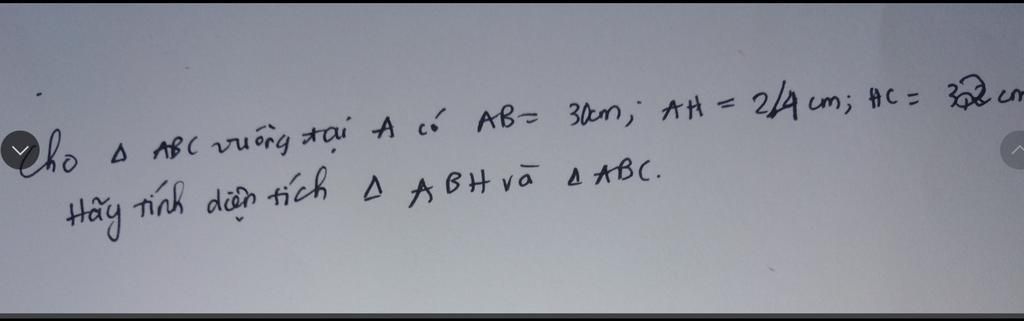 Cho Δ ABC vuông tại A có AB = 30cm; AH = 24 cm; HC = 32 cm
Hãy tính diện tích Δ ABH và Δ ABC.